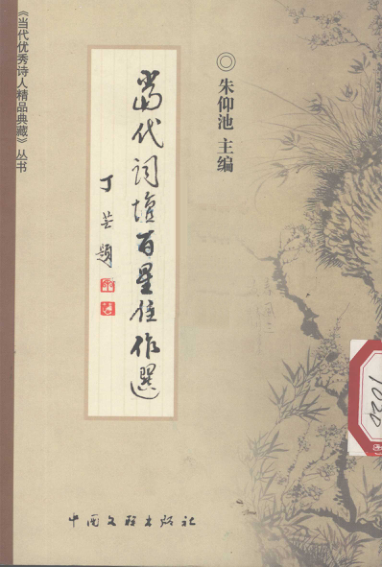 《当代优秀诗人精品典藏》丛书
◎朱仰池 主编
当代词坛百星佳作选
丁芒题
中国文联出版社
1020